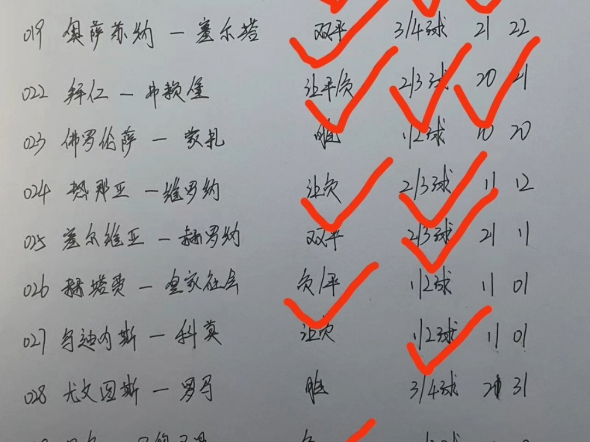 019 奥萨苏纳 — 塞尔塔 双平 3/4球 21 22
022 拜仁 — 弗赖堡 让平负 2/3球 20 21
023 佛罗伦萨 — 蒙扎 胜 1/2球 10 20
024 热那亚 — 维罗纳 让负 2/3球 11 12
025 塞尔维亚 — 赫罗纳 双平 2/3球 21 11
026 赫塔费 — 皇家社会 负/平 1/2球 11 01
027 乌迪内斯 — 科莫 让负 1/2球 11 01
028 尤文图斯 — 罗马 胜 3/4球 21 31